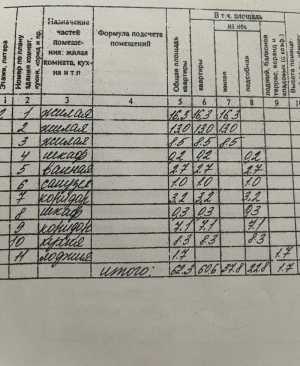 Этажи, литера
Номер по плану
Назначение частей помещения: жилая комната, кухня и т.п
Формула подсчета помещений
Общая площадь квартиры
В т.ч. площадь
из них
квартиры
жилая
подсобная
1 2 3 4 5 6 7 8 9 10
1 жилая 16,3 16,3 16,3
2 жилая 13.0 13.0 13.0
3 жилая 8.5 8.5 8.5
4 шкаф 0.2 0.2 0.2
5 ванная 2.7 2.7 2.7
6 санузел 1.0 1.0 1.0
7 коридор 3,2 3,2 3,2
8 шкаф 0.3 0.3 0.3
9 коридор 7.1 7.1 7.1
10 кухня 8.3 8.3 8.3
11 лоджия 1.7 1.7
итого: 62.3 60.6 37.8 22.8 1.7